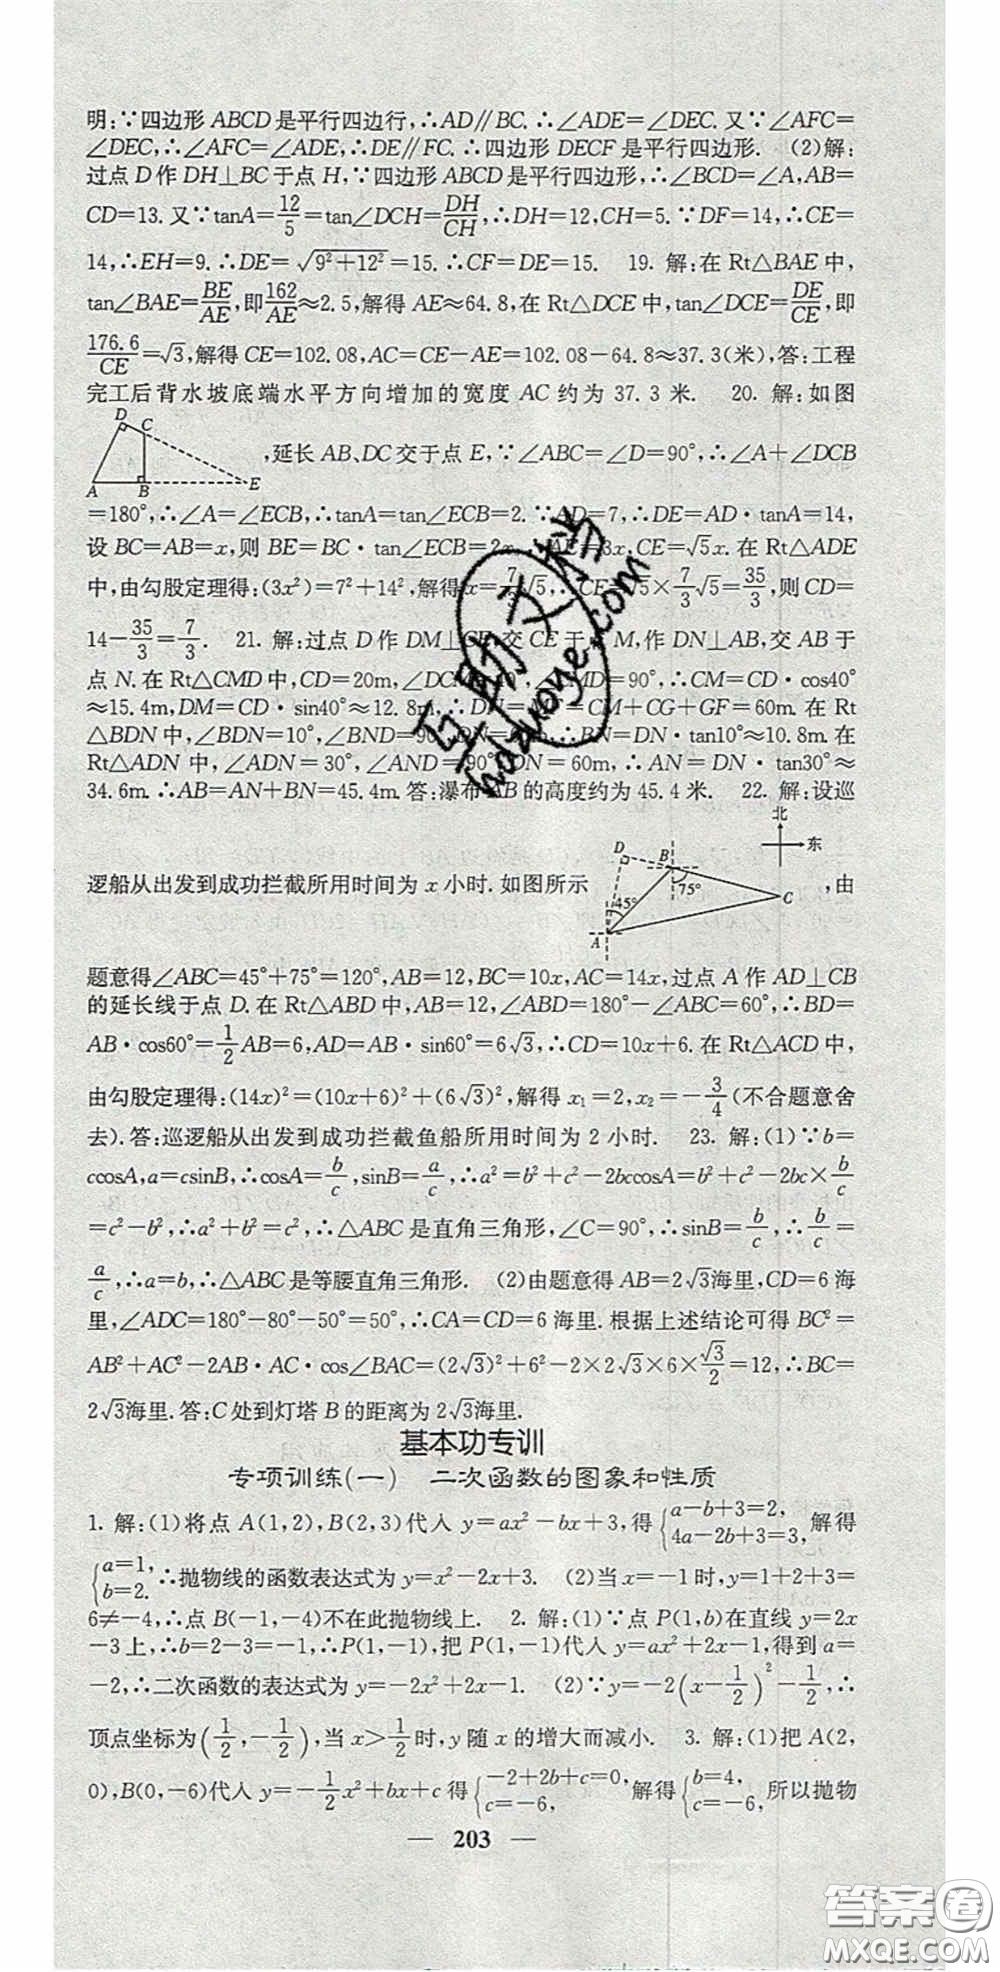 明:∵四边形ABCD是平行四边行,∴AD∥BC.∴∠ADE=∠DEC.又∵∠AFC=
∠DEC,∴∠AFC=∠ADE,∴DE∥FC.∴四边形DECF是平行四边形. (2)解:
过点D作DH⊥BC于点H,∵四边形ABCD是平行四边形,∴∠BCD=∠A,AB=
CD=13.又∵tanA=12/5=tan∠DCH=DH/CH,∴DH=12,CH=5.∵DF=14,∴CE=
14,∴EH=9.∴DE=√(9²+12²)=15.∴CF=DE=15. 19. 解:在Rt△BAE中,
tan∠BAE=BE/AE,即162/AE≈2.5,解得AE≈64.8,在Rt△DCE中,tan∠DCE=DE/CE,即
176.6/CE=√3,解得CE=102.08,AC=CE-AE=102.08-64.8≈37.3(米),答:工程
完工后背水坡底端水平方向增加的宽度AC约为37.3米. 20. 解:如图
D C A B E
,延长AB、DC交于点E,∵∠ABC=∠D=90°,∴∠A+∠DCB
=180°,∴∠A=∠ECB,∴tanA=tan∠ECB=2.∵AD=7,∴DE=AD·tanA=14,
设BC=AB=x,则BE=BC·tan∠ECB=2x,∴AE=3x,CE=√5x.在Rt△ADE
中,由勾股定理得:(3x²)=7²+14²,解得x=7/3√5,∴CE=√5×7/3√5=35/3,则CD=
14-35/3=7/3. 21. 解:过点D作DM⊥CE,交CE于 M,作DN⊥AB,交AB于
点N.在Rt△CMD中,CD=20m,∠DCM= ∠CMD=90°,∴CM=CD·cos40°
≈15.4m,DM=CD·sin40°≈12.8m,∴DN=MF=CM+CG+GF=60m.在Rt
△BDN中,∠BDN=10°,∠BND=90°,DN=60m,∴BN=DN·tan10°≈10.8m.在
Rt△ADN中,∠ADN=30°,∠AND=90°,DN=60m,∴AN=DN·tan30°≈
34.6m.∴AB=AN+BN=45.4m.答:瀑布AB的高度约为45.4米. 22. 解:设巡
北 东 D B 75° 45° A C
逻船从出发到成功拦截所用时间为x小时.如图所示 ,由
题意得∠ABC=45°+75°=120°,AB=12,BC=10x,AC=14x,过点A作AD⊥CB
的延长线于点D.在Rt△ABD中,AB=12,∠ABD=180°-∠ABC=60°,∴BD=
AB·cos60°=1/2AB=6,AD=AB·sin60°=6√3,∴CD=10x+6.在Rt△ACD中,
由勾股定理得:(14x)²=(10x+6)²+(6√3)²,解得x₁=2,x₂=-3/4(不合题意舍
去).答:巡逻船从出发到成功拦截鱼船所用时间为2小时. 23. 解:(1)∵b=
ccosA,a=csinB,∴cosA=b/c,sinB=a/c,∴a²=b²+c²-2bccosA=b²+c²-2bc×b/c
=c²-b²,∴a²+b²=c²,∴△ABC是直角三角形,∠C=90°,∴sinB=b/c,∴b/c=
a/c,∴a=b,∴△ABC是等腰直角三角形. (2)由题意得AB=2√3海里,CD=6海
里,∠ADC=180°-80°-50°=50°,∴CA=CD=6海里.根据上述结论可得BC²=
AB²+AC²-2AB·AC·cos∠BAC=(2√3)²+6²-2×2√3×6×√3/2=12,∴BC=
2√3海里.答:C处到灯塔B的距离为2√3海里.
基本功专训
专项训练(一) 二次函数的图象和性质
1. 解:(1)将点A(1,2),B(2,3)代入y=ax²-bx+3,得{a-b+3=2, 4a-2b+3=3,解得
{a=1, b=2. ∴抛物线的函数表达式为y=x²-2x+3. (2)当x=-1时,y=1+2+3=
6≠-4,∴点B(-1,-4)不在此抛物线上. 2. 解:(1)∵点P(1,b)在直线y=2x
-3上,∴b=2-3=-1,∴P(1,-1),把P(1,-1)代入y=ax²+2x-1,得到a=
-2,∴二次函数的表达式为y=-2x²+2x-1. (2)∵y=-2(x-1/2)²-1/2,∴
顶点坐标为(1/2,-1/2),当x>1/2时,y随x的增大而减小. 3. 解:(1)把A(2,
0),B(0,-6)代入y=-1/2x²+bx+c得{-2+2b+c=0, c=-6, 解得{b=4, c=-6,所以抛物
— 203 —
互助文档
hdzuoye.com
答案圈
MXQE.COM